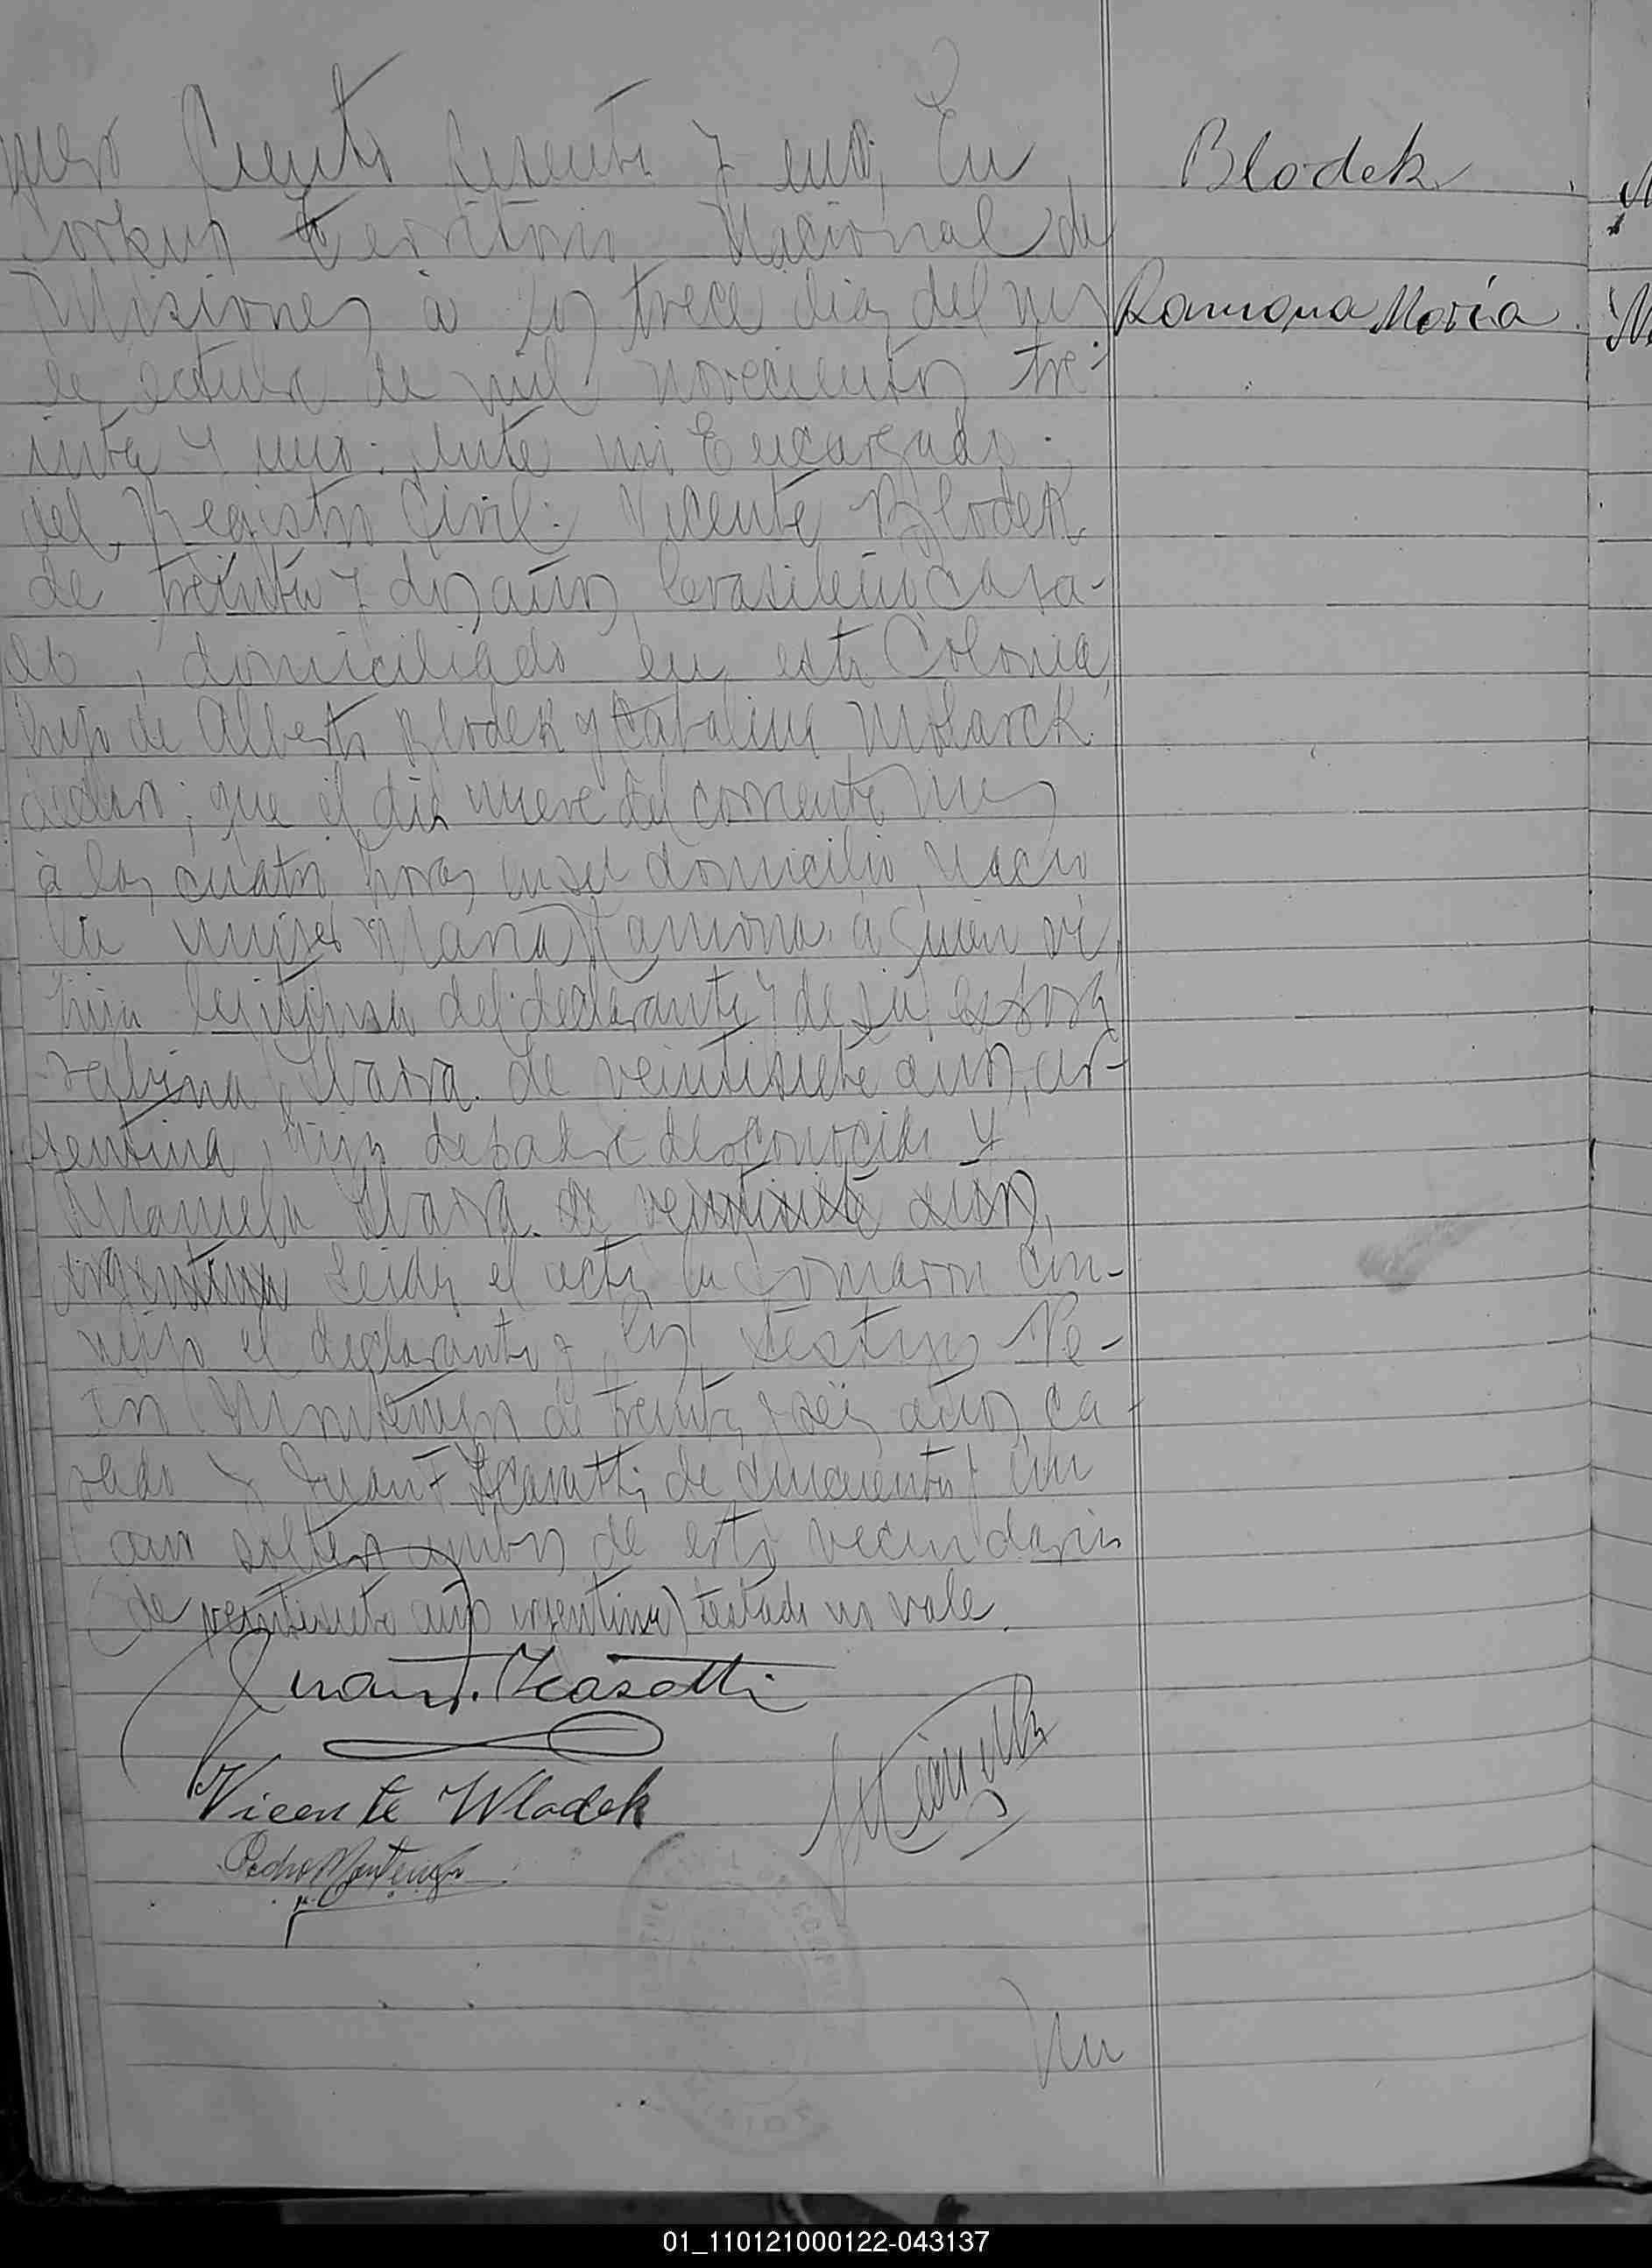 mero Ciento sesenta y uno; En
Corpus Territorio Nacional de
Misiones à los trece dias del mes
de octubre de mil novecientos tre-
inta y uno: Ante mi Encargado
del Registro Civil: Vicente Blodek
de treinta y dos años, brasileño casa-
do, domiciliado en esta Colonia,
hijo de Alberto Blodek y Catalina
declaro; que el dia nueve del corriente mes
à las cuatro horas en su domicilio, nacio
la mujer Maria Ramona à quien vi,
hija legitima del declarante y de su esposa
de veintisiete años, ar-
gentina, hija de padre desconocido y
Manuela de veintisiete años,
argentina Leida el acta la firmaron con-
migo el declarante y los testigos Pe-
dro Montenegro de treinta y seis años, ca-
sado y Juan F de cincuenta y un
años soltero ambos de este vecindario
(de veintisiete años argentina) testado no vale.
Vicente Wlodek
Pedro Montenegro
Nu
Blodek
Ramona Maria
01_110121000122-043137